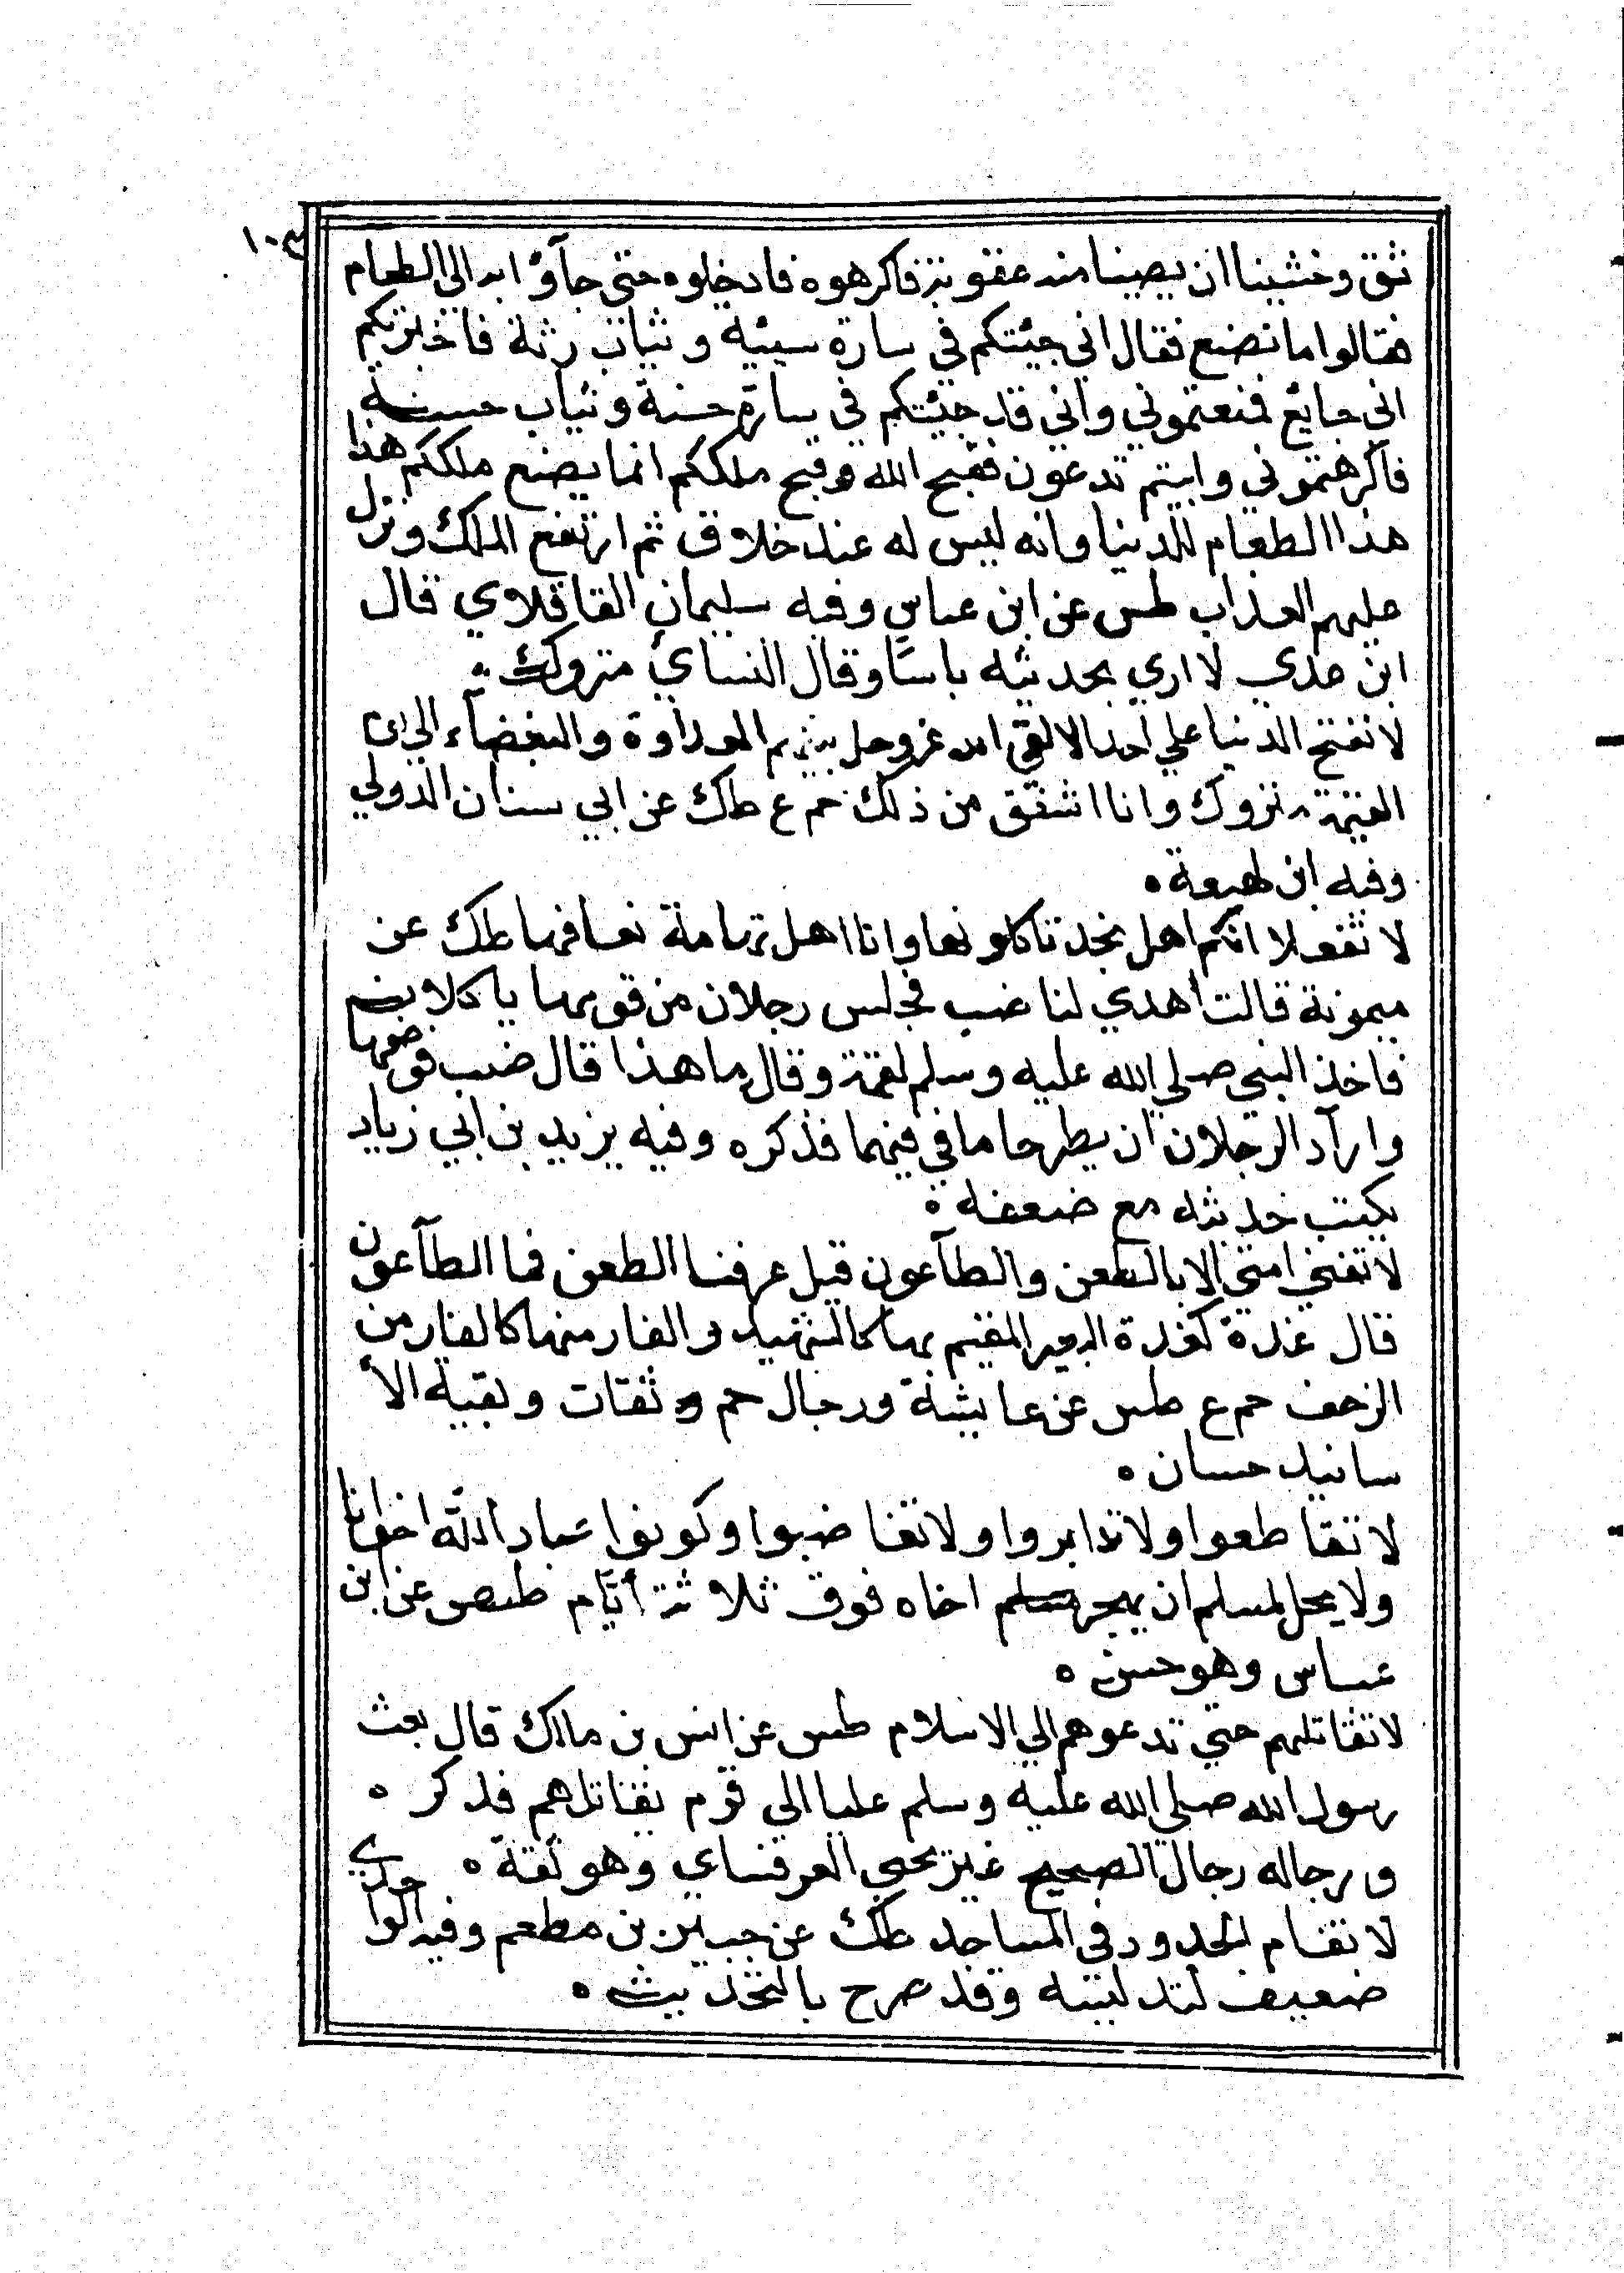 ١٠٣
ثق وخشينا ان يصيبنا منه عقوبة فاكرهوه فادخلوه حتي جآؤا به الي الطعام
فقالوا ما نصنع فقال اني جيئتكم في سارة سيئة وثياب رثة فاخبرتكم
اني جايع فمنعتموني واني قد جيئتكم في سارة حسنة وثياب حسنة
فاكرهتموني وابيتم تدعون فقبح الله وقبح ملككم انما يصنع ملككم هذا
هذا الطعام للدنيا وانه ليس له عند خلاق ثم ارتفع الملك ونزل
عليهم العذاب طس عن ابن عباس وفيه سليمان القاقلاوي قال
ابن عدي لا اري بحديثه باسًا وقال النساي متروك
لا تفتح الدنيا علي احد الا القي الله عز وجل بينهم العداوة والبغضآء الي
القيمة وانا اشفق من ذلك حم ع طك عن ابي سنان الدولي
وفيه ابن لهيعة
لا تفعلا انكم اهل نجد تاكلونها وانا اهل تهامة نعافها طك عن
ميمونة قالت اهدي لنا ضب فجلس رجلان من قومها ياكلا
فاخذ النبي صلي الله عليه وسلم لقمة وقال ما هذا قال ضب فوضعها
وارآد الرجلان ان يطرحا ما في فيهما فذكره وفيه يزيد بن ابي زياد
يكتب حديثه مع ضعفه
لا تفني امتي الا بالطعن والطآعون قيل عرفنا الطعن فما الطآعون
قال غدة كغدة البعير المقيم بها كالشهيد والفار منها كالفار من
الزحف حم ع طس عن عايشة ورجال حم ثقات وبقية الا
سانيد حسان
لا تقاطعوا ولا تدابروا ولا تغاضبوا وكونوا عباد الله اخوانا
ولا يحل لمسلم ان يهجر اخاه فوق ثلاثة أيّام طص عن ابن
عباس وهو حسن
لا تقاتلهم حتي تدعوهم الي الاسلام طس عن انس بن مالك قال بعث
رسول الله صلي الله عليه وسلم عليا الي قوم يقاتلهم فذكر
ورجاله رجال الصحيح غير يحيي العرقساي وهو ثقة
لا تقام الحدود في المساجد طك عن جبير بن مطعم وفيه الوا
ضعيف لتدليسه وقد صرح بالتحديث